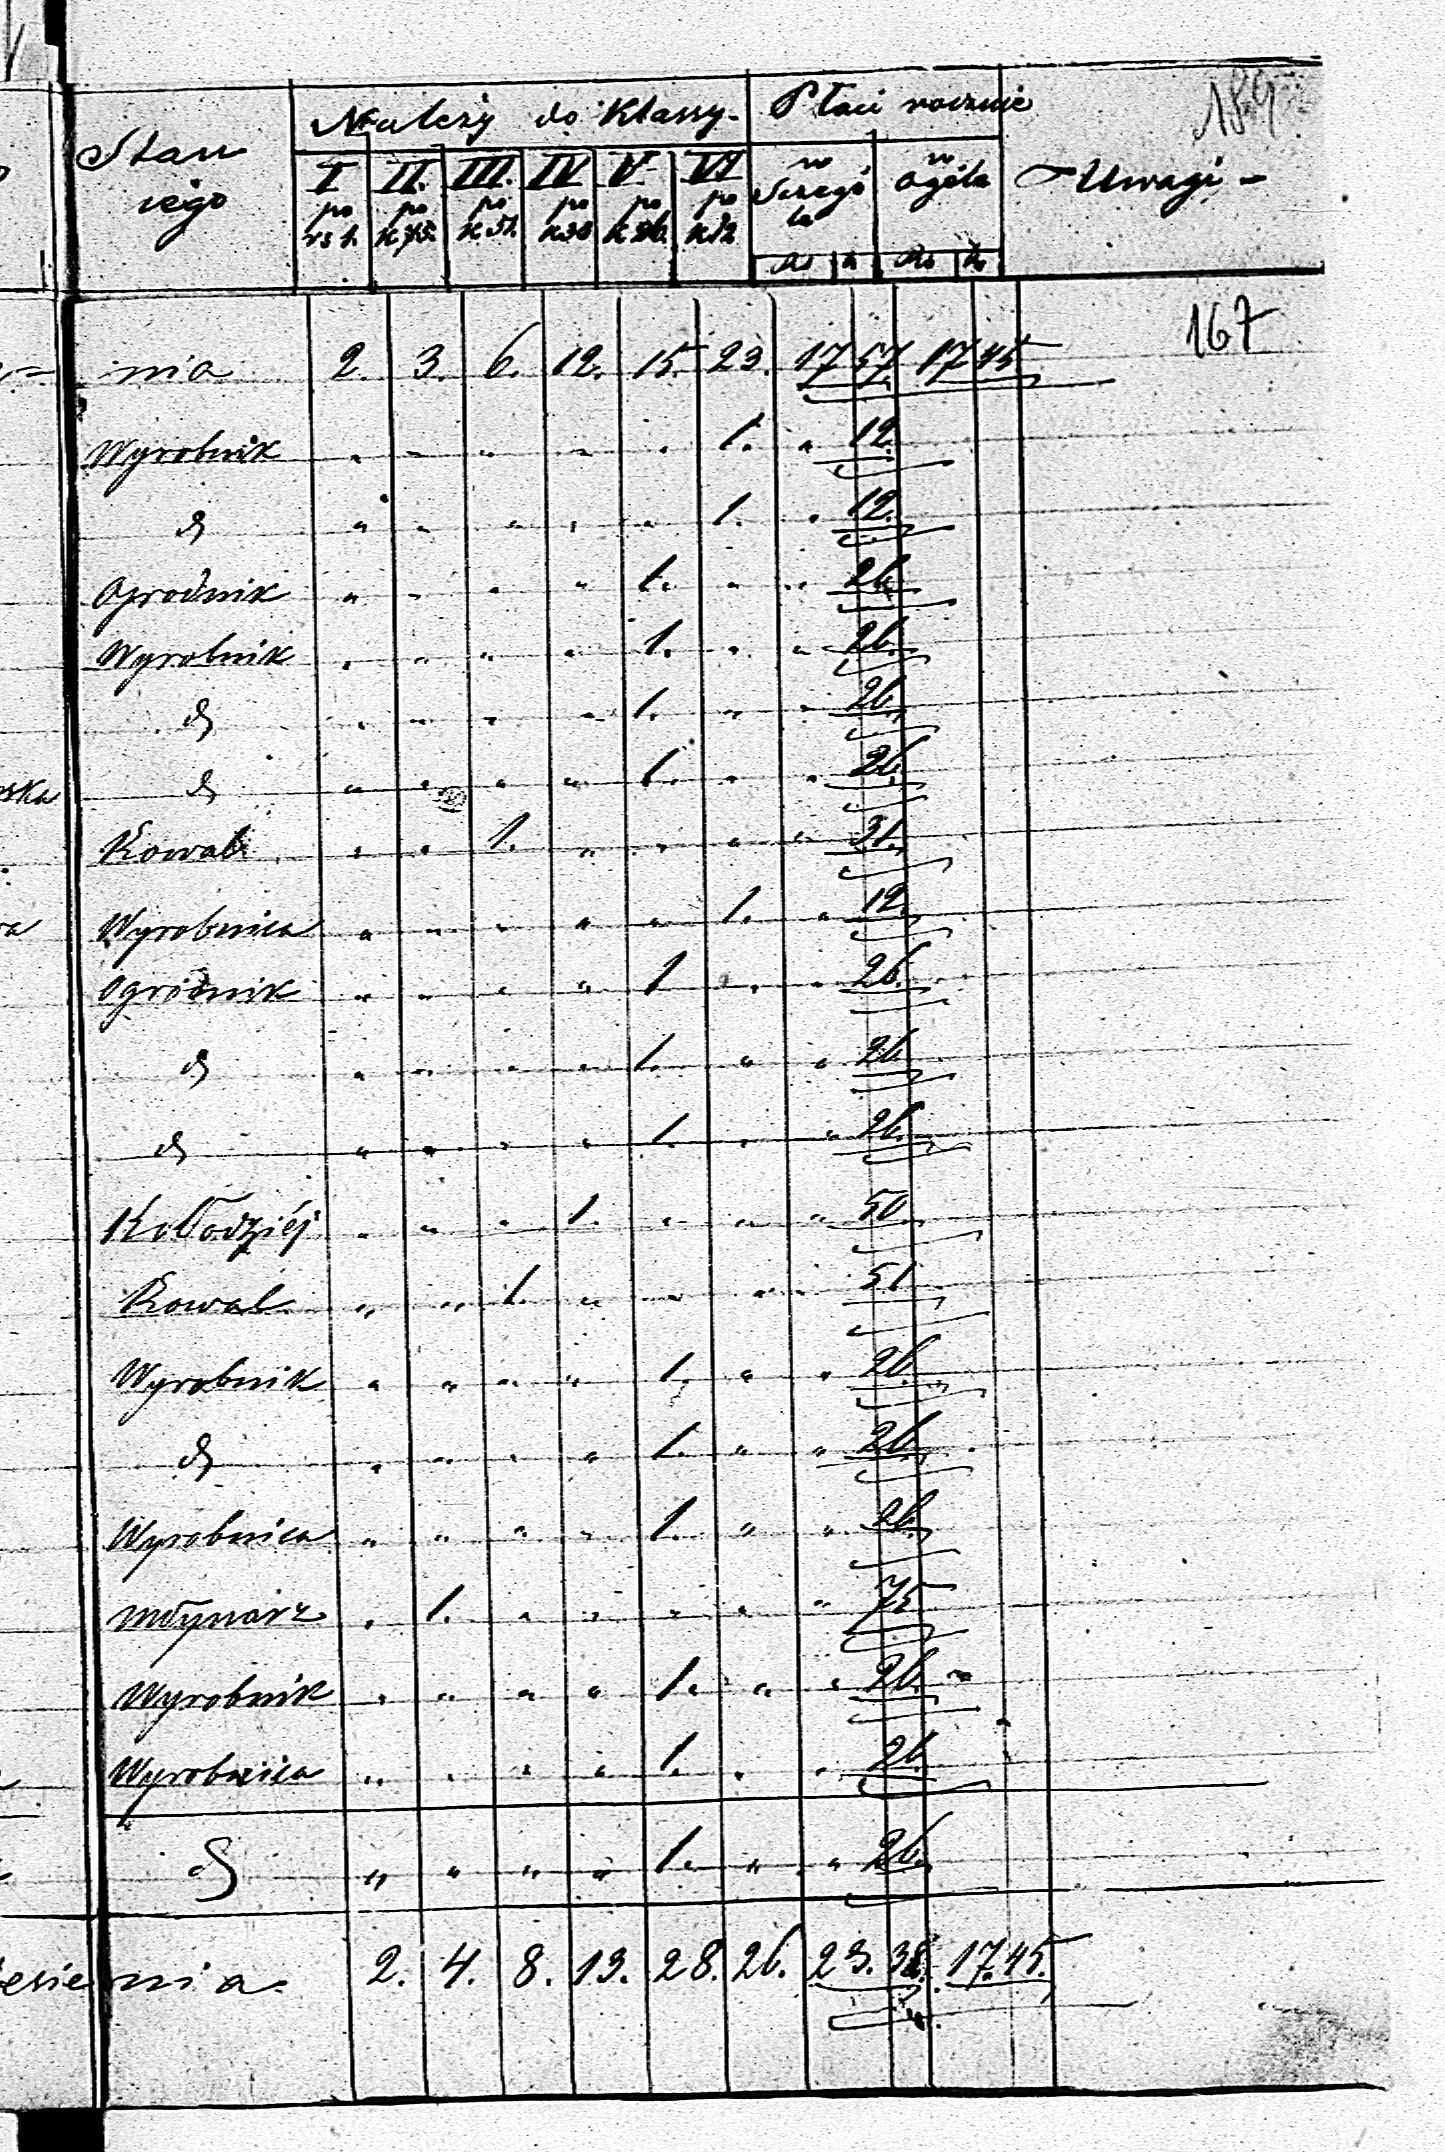 189
Stan iego Należy do Klassy. Płaci rocznie Uwagi
I II. III. IV V VI w Szczegó w ogóle
po po po po po po
rs 1. k 75. k 51. k 38 k 26. k 12
167
nia 2. 3. 6. 12. 15. 23. 17 57 17 45
Wyrobnik . - „ . . 1. „ 12.
d „ „ „ . „ 1. . 12.
Ogrodnik „ - . „ 1. „ . 26.
Wyrobnik . „ „ . 1. . „ 26.
d . „ . „ 1. „ . 26.
ska d „ . „ „ 1. . . 26.
Kowal . . 1. „ . „ „ 31.
Wyrobnica „ „ . „ „ 1. „ 12.
Ogrodnik „ „ . „ 1 . . 26.
d „ „ . . 1. „ „ 26
d „ „ . . 1. . „ 26.
Kołodziéj . „ . 1. . „ „ 50
Kowal „ „ 1. „ „ „ . 51
Wyrobnik „ „ „ „ 1. „ . 26.
d . „ . „ 1. „ „ 26.
Wyrobnica „ „ „ . 1. „ „ 26.
Młynarz . 1. . . . . „ 75
Wyrobnik . „ „ „ 1. „ „ 26.
Wyrobnica „ . „ „ 1. . . 26
d „ „ „ „ 1. „ „ 26.
esienia. 2. 4. 8. 13. 28. 26. 23. 38. 17. 45.